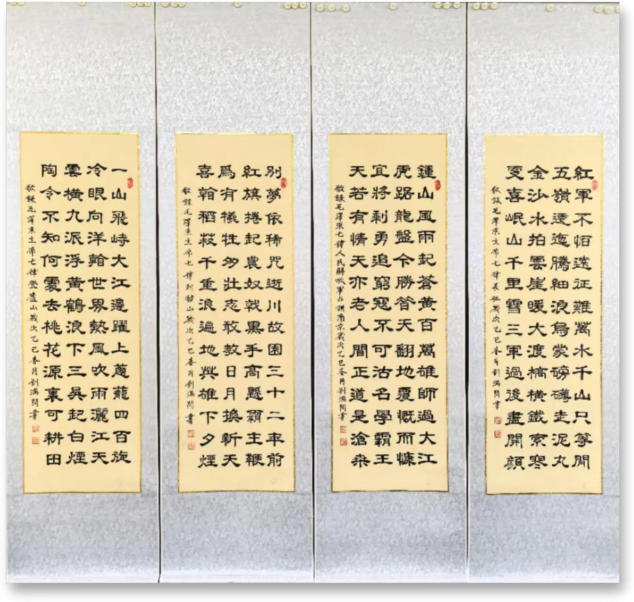 紅軍不怕遠征難萬水千山只等閒
五嶺逶迤騰細浪烏蒙磅礴走泥丸
金沙水拍雲崖暖大渡橋橫鐵索寒
更喜岷山千里雪三軍過後盡開顏
敬錄毛澤東主席七律長征歲次乙巳春月劉滿閣書
鍾山風雨起蒼黃百萬雄師過大江
虎踞龍盤今勝昔天翻地覆慨而慷
宜將剩勇追窮寇不可沽名學霸王
天若有情天亦老人間正道是滄桑
敬錄毛澤東七律人民解放軍占領南京歲次乙巳春月劉滿閣書
別夢依稀咒逝川故園三十二年前
紅旗捲起農奴戟黑手高懸霸主鞭
爲有犧牲多壯志敢教日月換新天
喜看稻菽千重浪遍地英雄下夕煙
敬錄毛澤東主席七律到韶山歲次乙巳春月劉滿閣書
一山飛峙大江邊躍上蔥蘢四百旋
冷眼向洋看世界熱風吹雨灑江天
雲橫九派浮黃鶴浪下三吳起白煙
陶令不知何處去桃花源裏可耕田
敬錄毛澤東主席七律登廬山歲次乙巳春月劉滿閣書